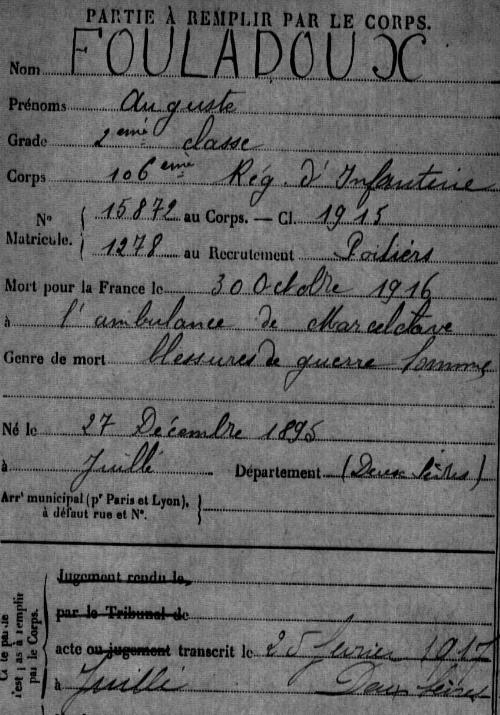 PARTIE À REMPLIR PAR LE CORPS.
Nom FOULADOUX
Prénoms Auguste
Grade 2eme classe
Corps 106eme Rég. d'Infanterie
N° Matricule. 15872 au Corps. — Cl. 1915
1278 au Recrutement Poitiers
Mort pour la France le 30 Octobre 1916
à l'ambulance de Marcelcave
Genre de mort blessures de guerre Somme
Né le 27 Décembre 1895
à Juillé Département (Deux Sèvres)
Arrt municipal (pr Paris et Lyon), à défaut rue et N°.
Jugement rendu le
par le Tribunal de
acte ou jugement transcrit le 25 février 1917
à Juillé Deux Sèvres
n'est pas à remplir
par le Corps.